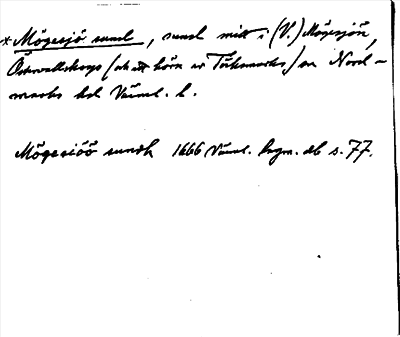 *Mögesjö sund, sund mitt i (V.) Mögesjön,
Östervallskogs (och ett hörn av Töcksmarks) sn Nord-
marks hd Värml. l.
Mögesiöö sundh 1666 Värml. lagm. db s. 77.